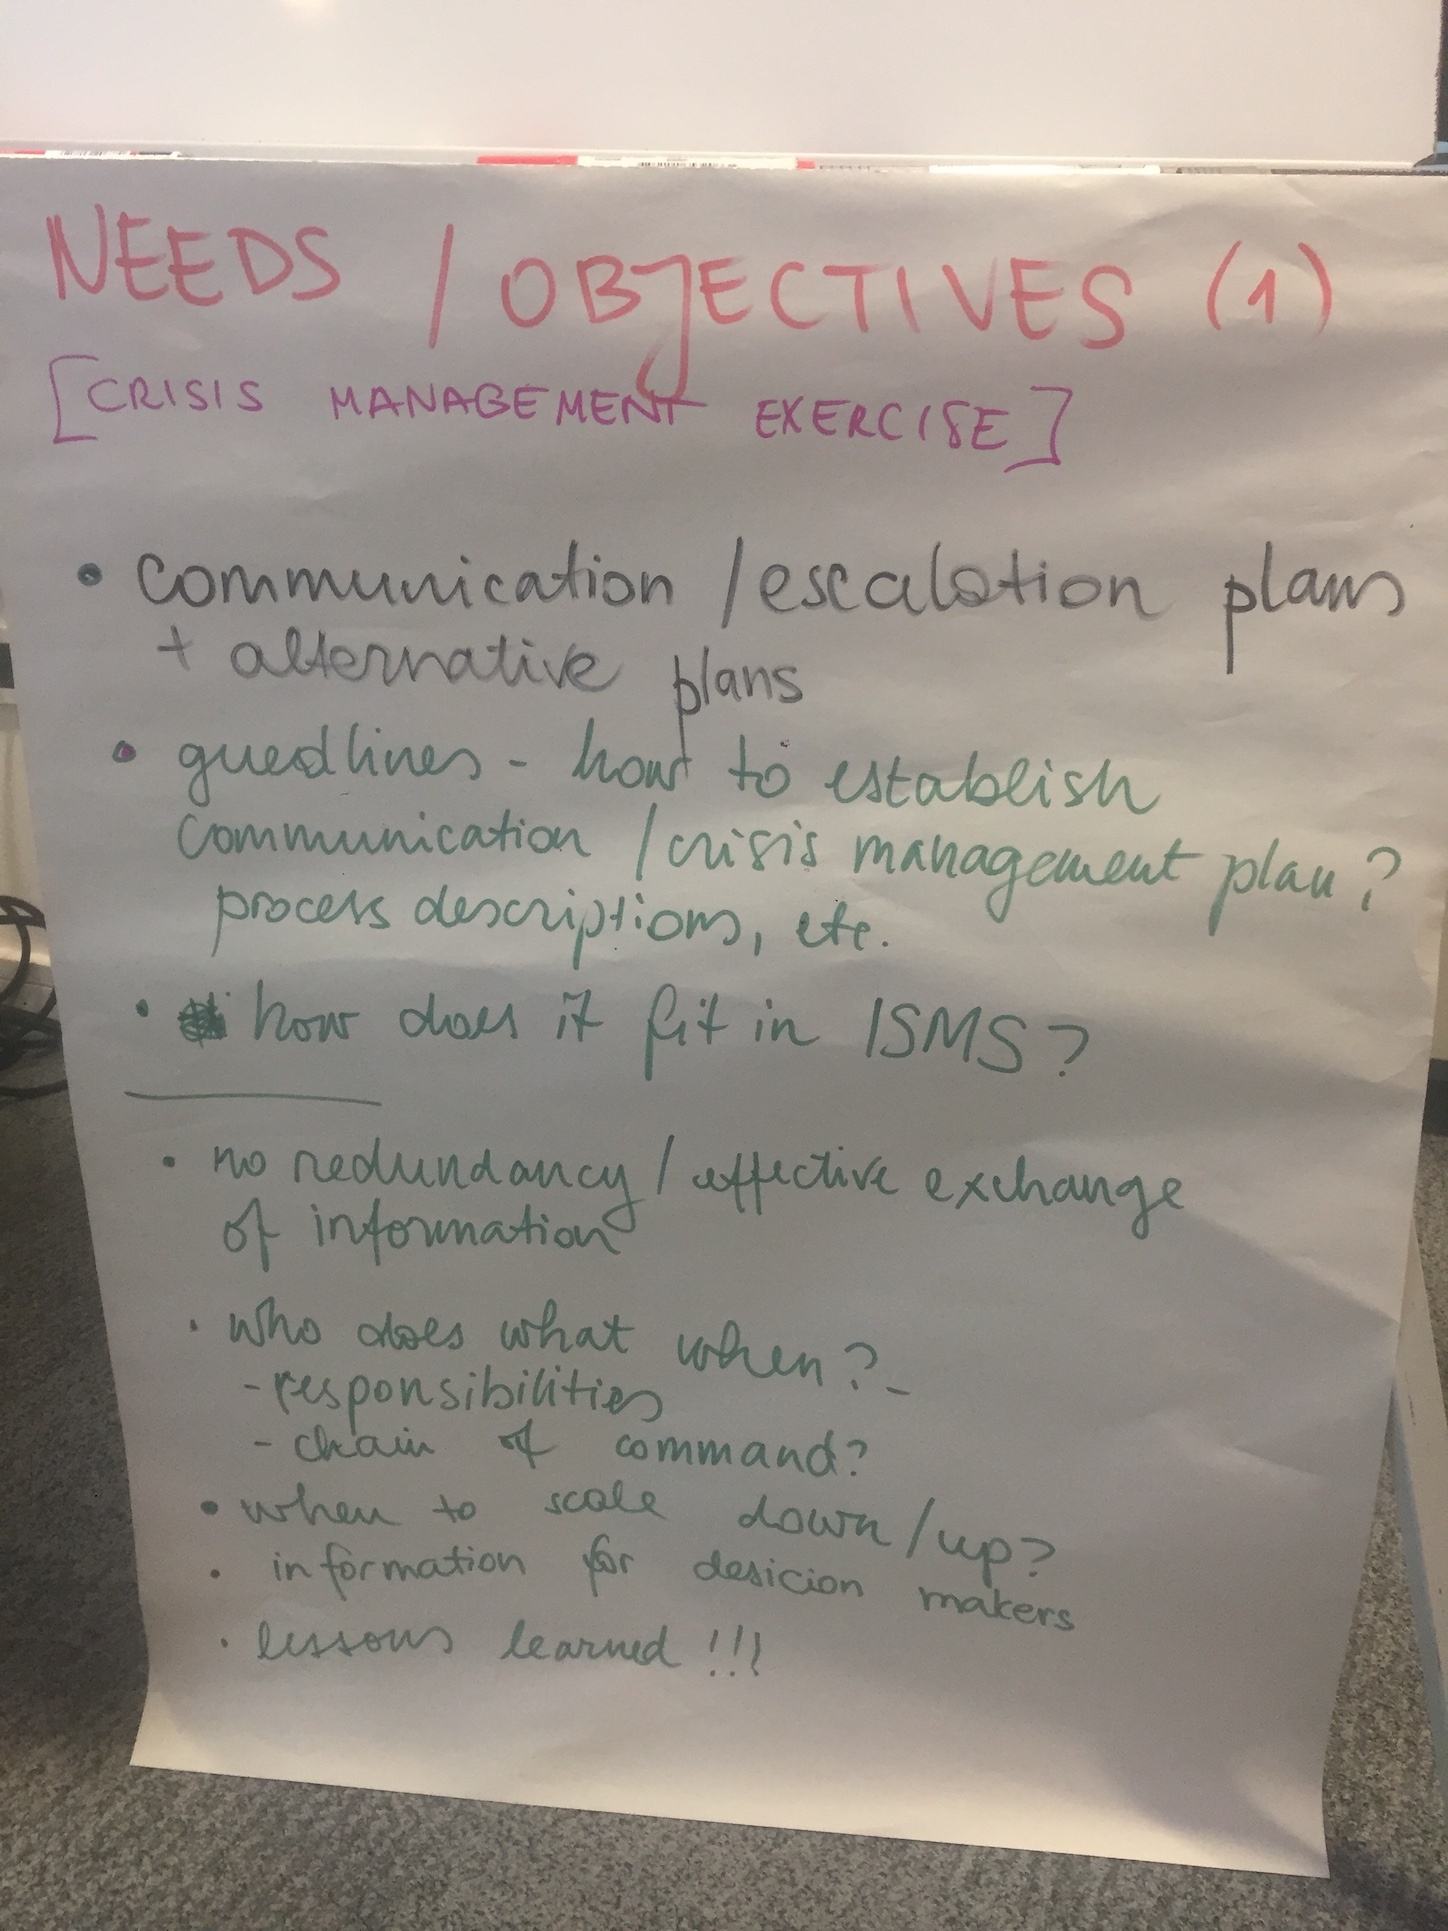 NEEDS / OBJECTIVES (1)
[CRISIS MANAGEMENT EXERCISE]
• communication / escalation plans
+ alternative plans
• guedlines - how to establish
communication / crisis management plan?
process descriptions, etc.
• how does it fit in ISMS?
• no redundancy / effective exchange
of information
• who does what when? -
- responsibilities
- chain of command?
• when to scale down / up?
• information for desicion makers
• lessons learned !!!